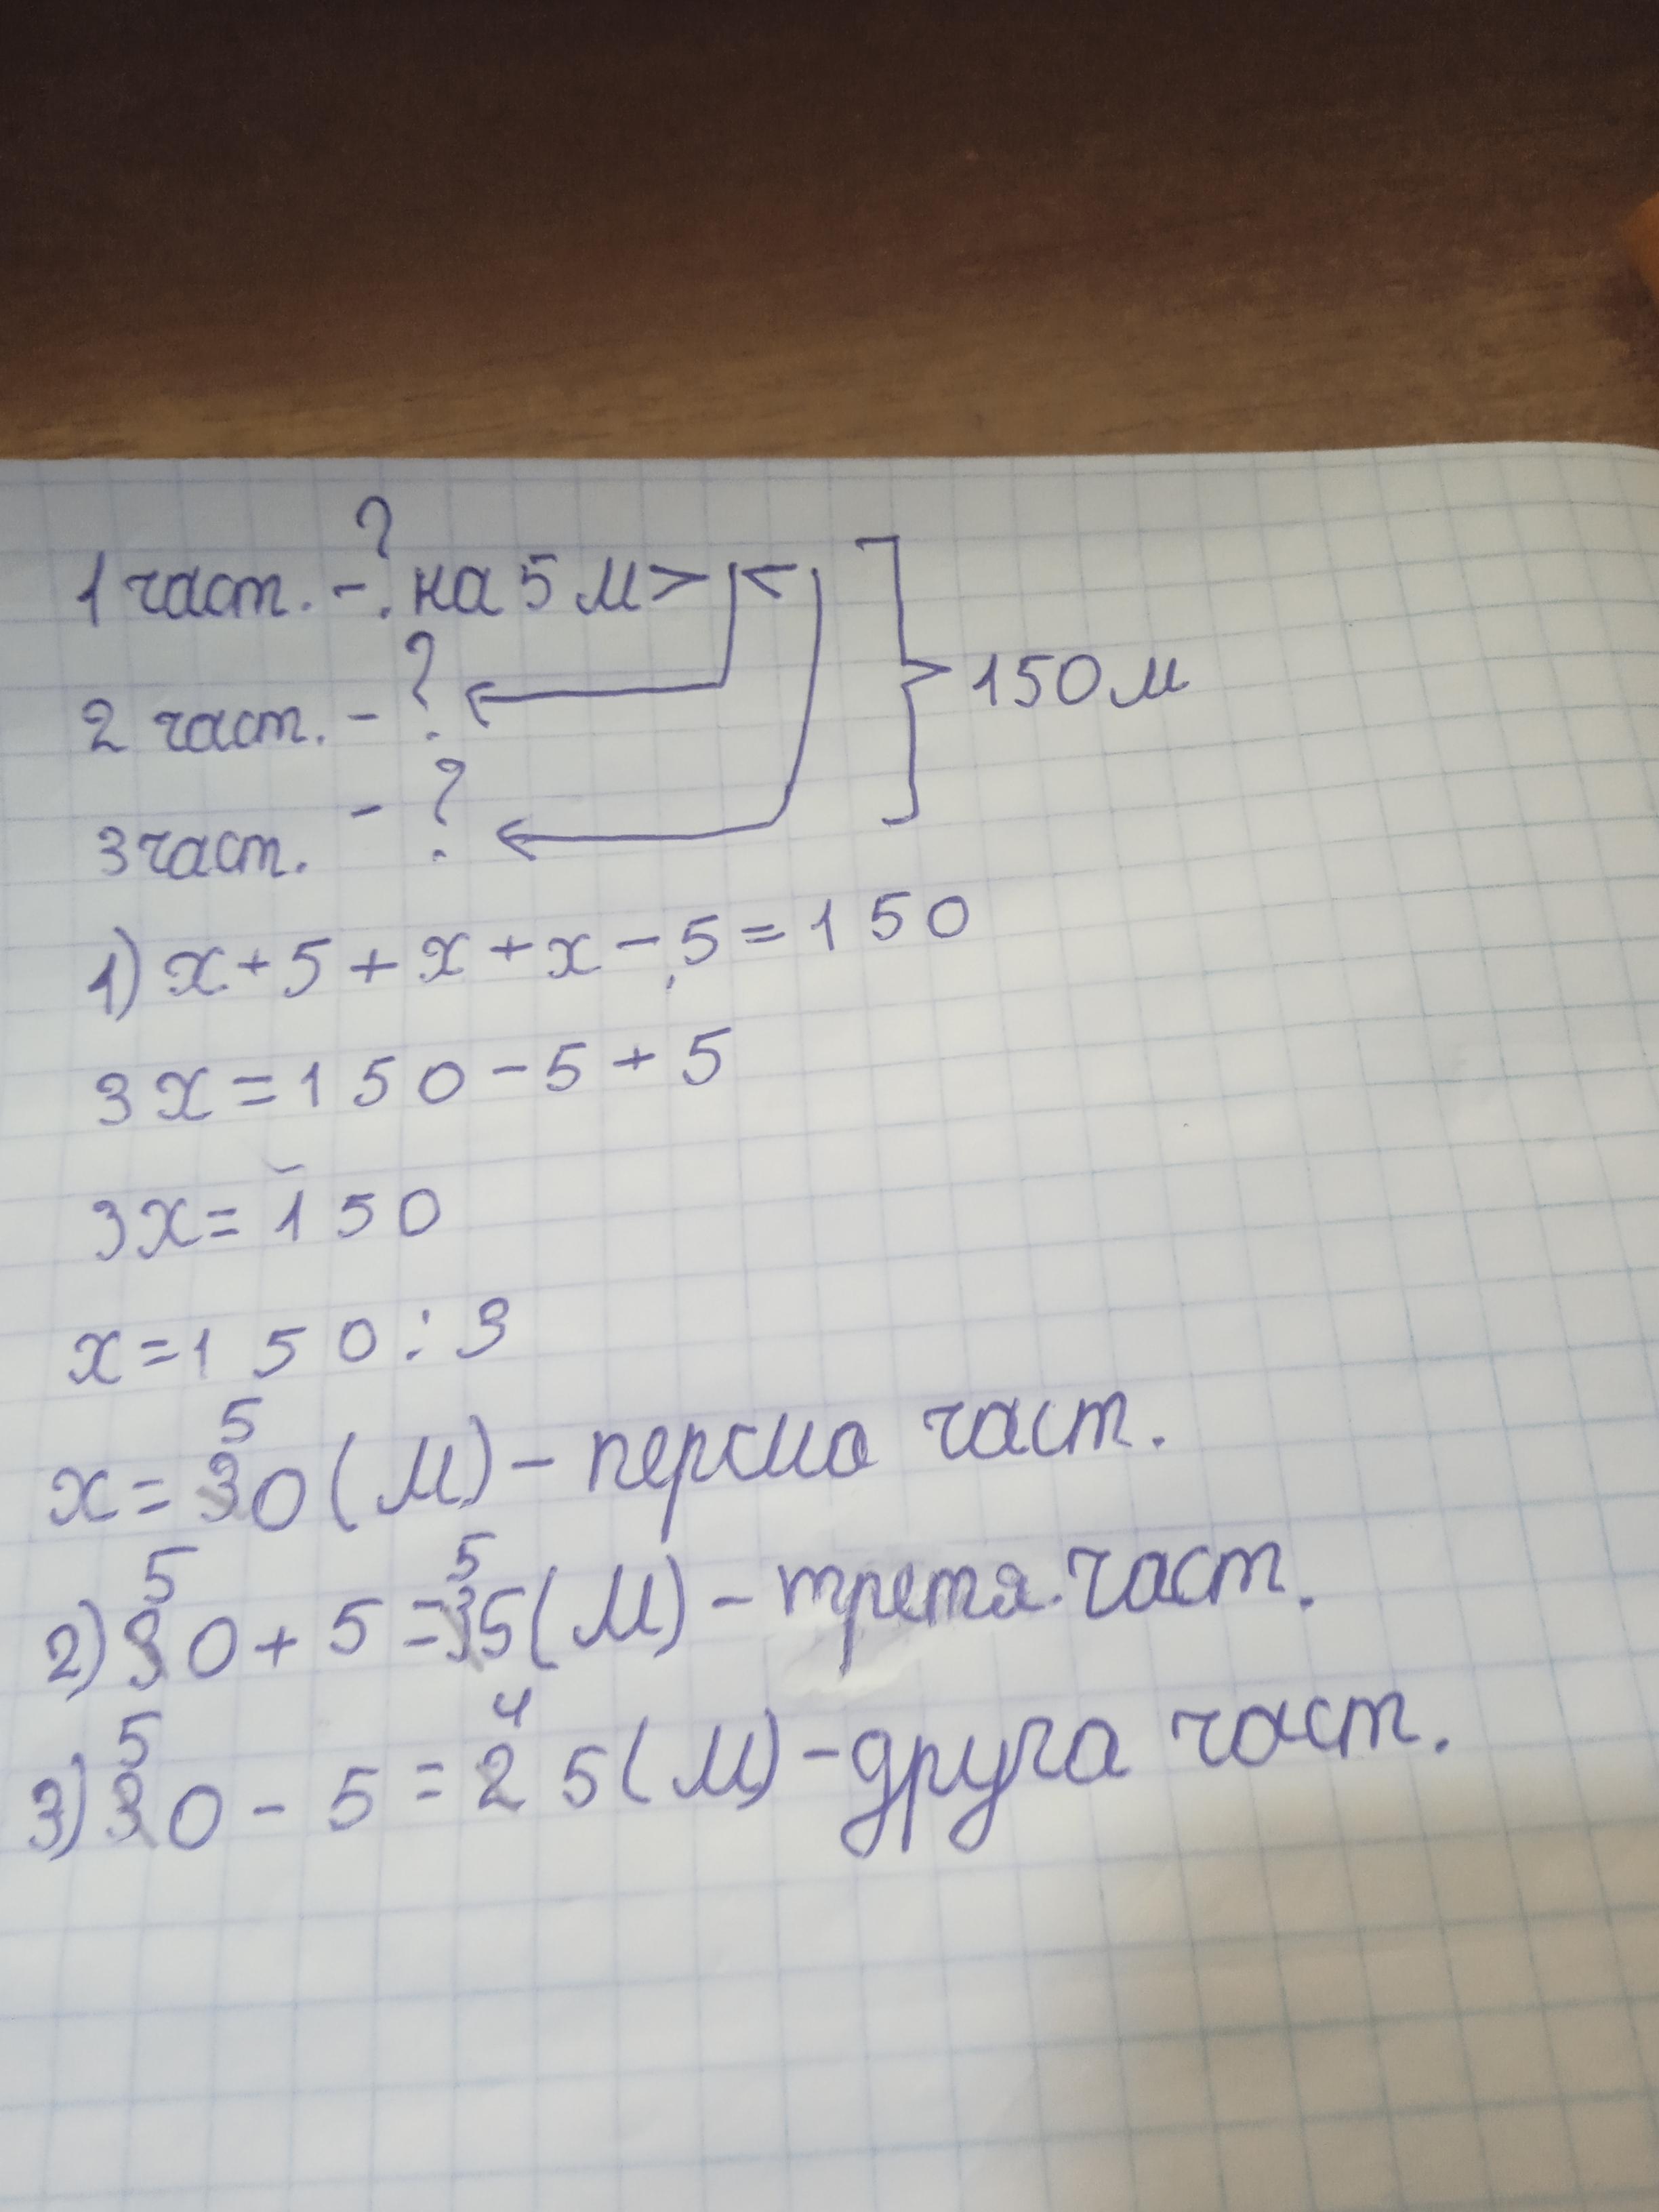 1 част. - ? на 5 м > <
2 част. - ?
150 м
3 част. - ?
1) x + 5 + x + x - 5 = 150
3x = 150 - 5 + 5
3x = 150
x = 150 : 3
5
x = 30 (м) - перша част.
5 5
2) 30 + 5 = 35 (м) - третя част.
5 4
3) 30 - 5 = 25 (м) - друга част.